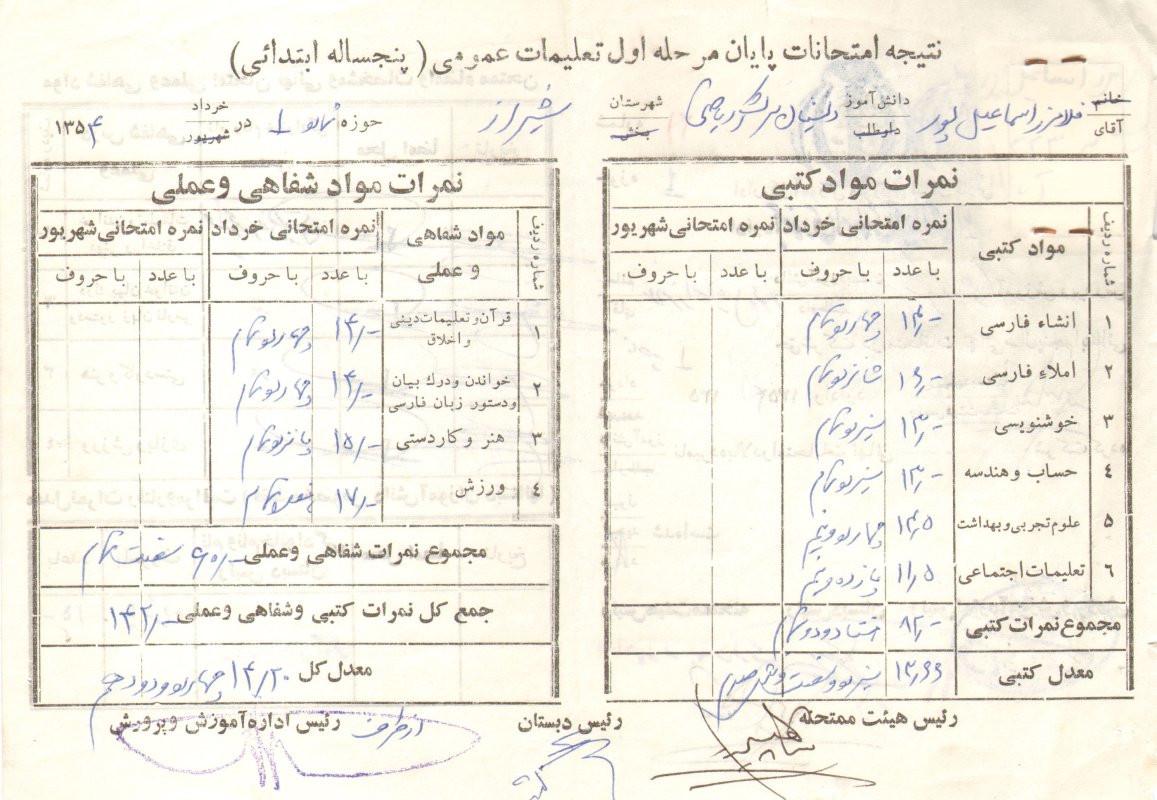 نتیجه امتحانات پایان مرحله اول تعلیمات عمومی ( پنجساله ابتدائی)
خانم آقای فلامرز اسماعیل پور دانش‌آموز داوطلب دبستان شهرستان بخش شیراز حوزه ۱ در خرداد شهریور ۱۳۵۴
نمرات مواد کتبی
شماره ردیف مواد کتبی نمره امتحانی خرداد نمره امتحانی شهریور
با عدد با حروف با عدد با حروف
۱ انشاء فارسی ۱۴/- چهارده تمام
۲ املاء فارسی ۱۶/- شانزده تمام
۳ خوشنویسی ۱۳/- سیزده تمام
۴ حساب و هندسه ۱۳/- سیزده تمام
۵ علوم تجربی و بهداشت ۱۴/۵ چهارده و نیم
۶ تعلیمات اجتماعی ۱۱/۵ یازده و نیم
مجموع نمرات کتبی ۸۲/- هشتاد و دو تمام
معدل کتبی ۱۳/۶۶ سیزده و شصت و شش صدم
رئیس هیئت ممتحنه
نمرات مواد شفاهی و عملی
شماره ردیف مواد شفاهی و عملی نمره امتحانی خرداد نمره امتحانی شهریور
با عدد با حروف با عدد با حروف
۱ قرآن و تعلیمات دینی و اخلاق ۱۴/- چهارده تمام
۲ خواندن و درك بیان و دستور زبان فارسی ۱۴/- چهارده تمام
۳ هنر و کاردستی ۱۵/- پانزده تمام
۴ ورزش ۱۷/- هفده تمام
مجموع نمرات شفاهی و عملی ۶۰/- شصت تمام
جمع کل نمرات کتبی و شفاهی و عملی ۱۴۲/-
معدل کل ۱۴/۲۰ چهارده و دو دهم
رئیس دبستان
رئیس اداره آموزش و پرورش
از طرف